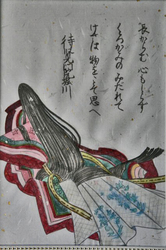 長からむ心もしらす
くろかみのみたれて
けさは物をこそ思へ
待賢門院堀川